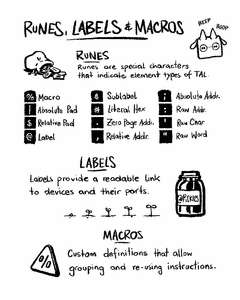 RUNES, LABELS & MACROS
BEEP BOOP
RUNES
Runes are special characters
that indicate element types of TAL.
% Macro
& Sublabel
; Absolute Addr.
| Absolute Pad
# Literal Hex
: Raw Addr.
$ Relative Pad
. Zero Page Addr.
' Raw Char
@ Label
, Relative Addr.
" Raw Word
LABELS
Labels provide a readable link
to devices and their ports.
@PICKLES
MACROS
%
Custom definitions that allow
grouping and re-using instructions.